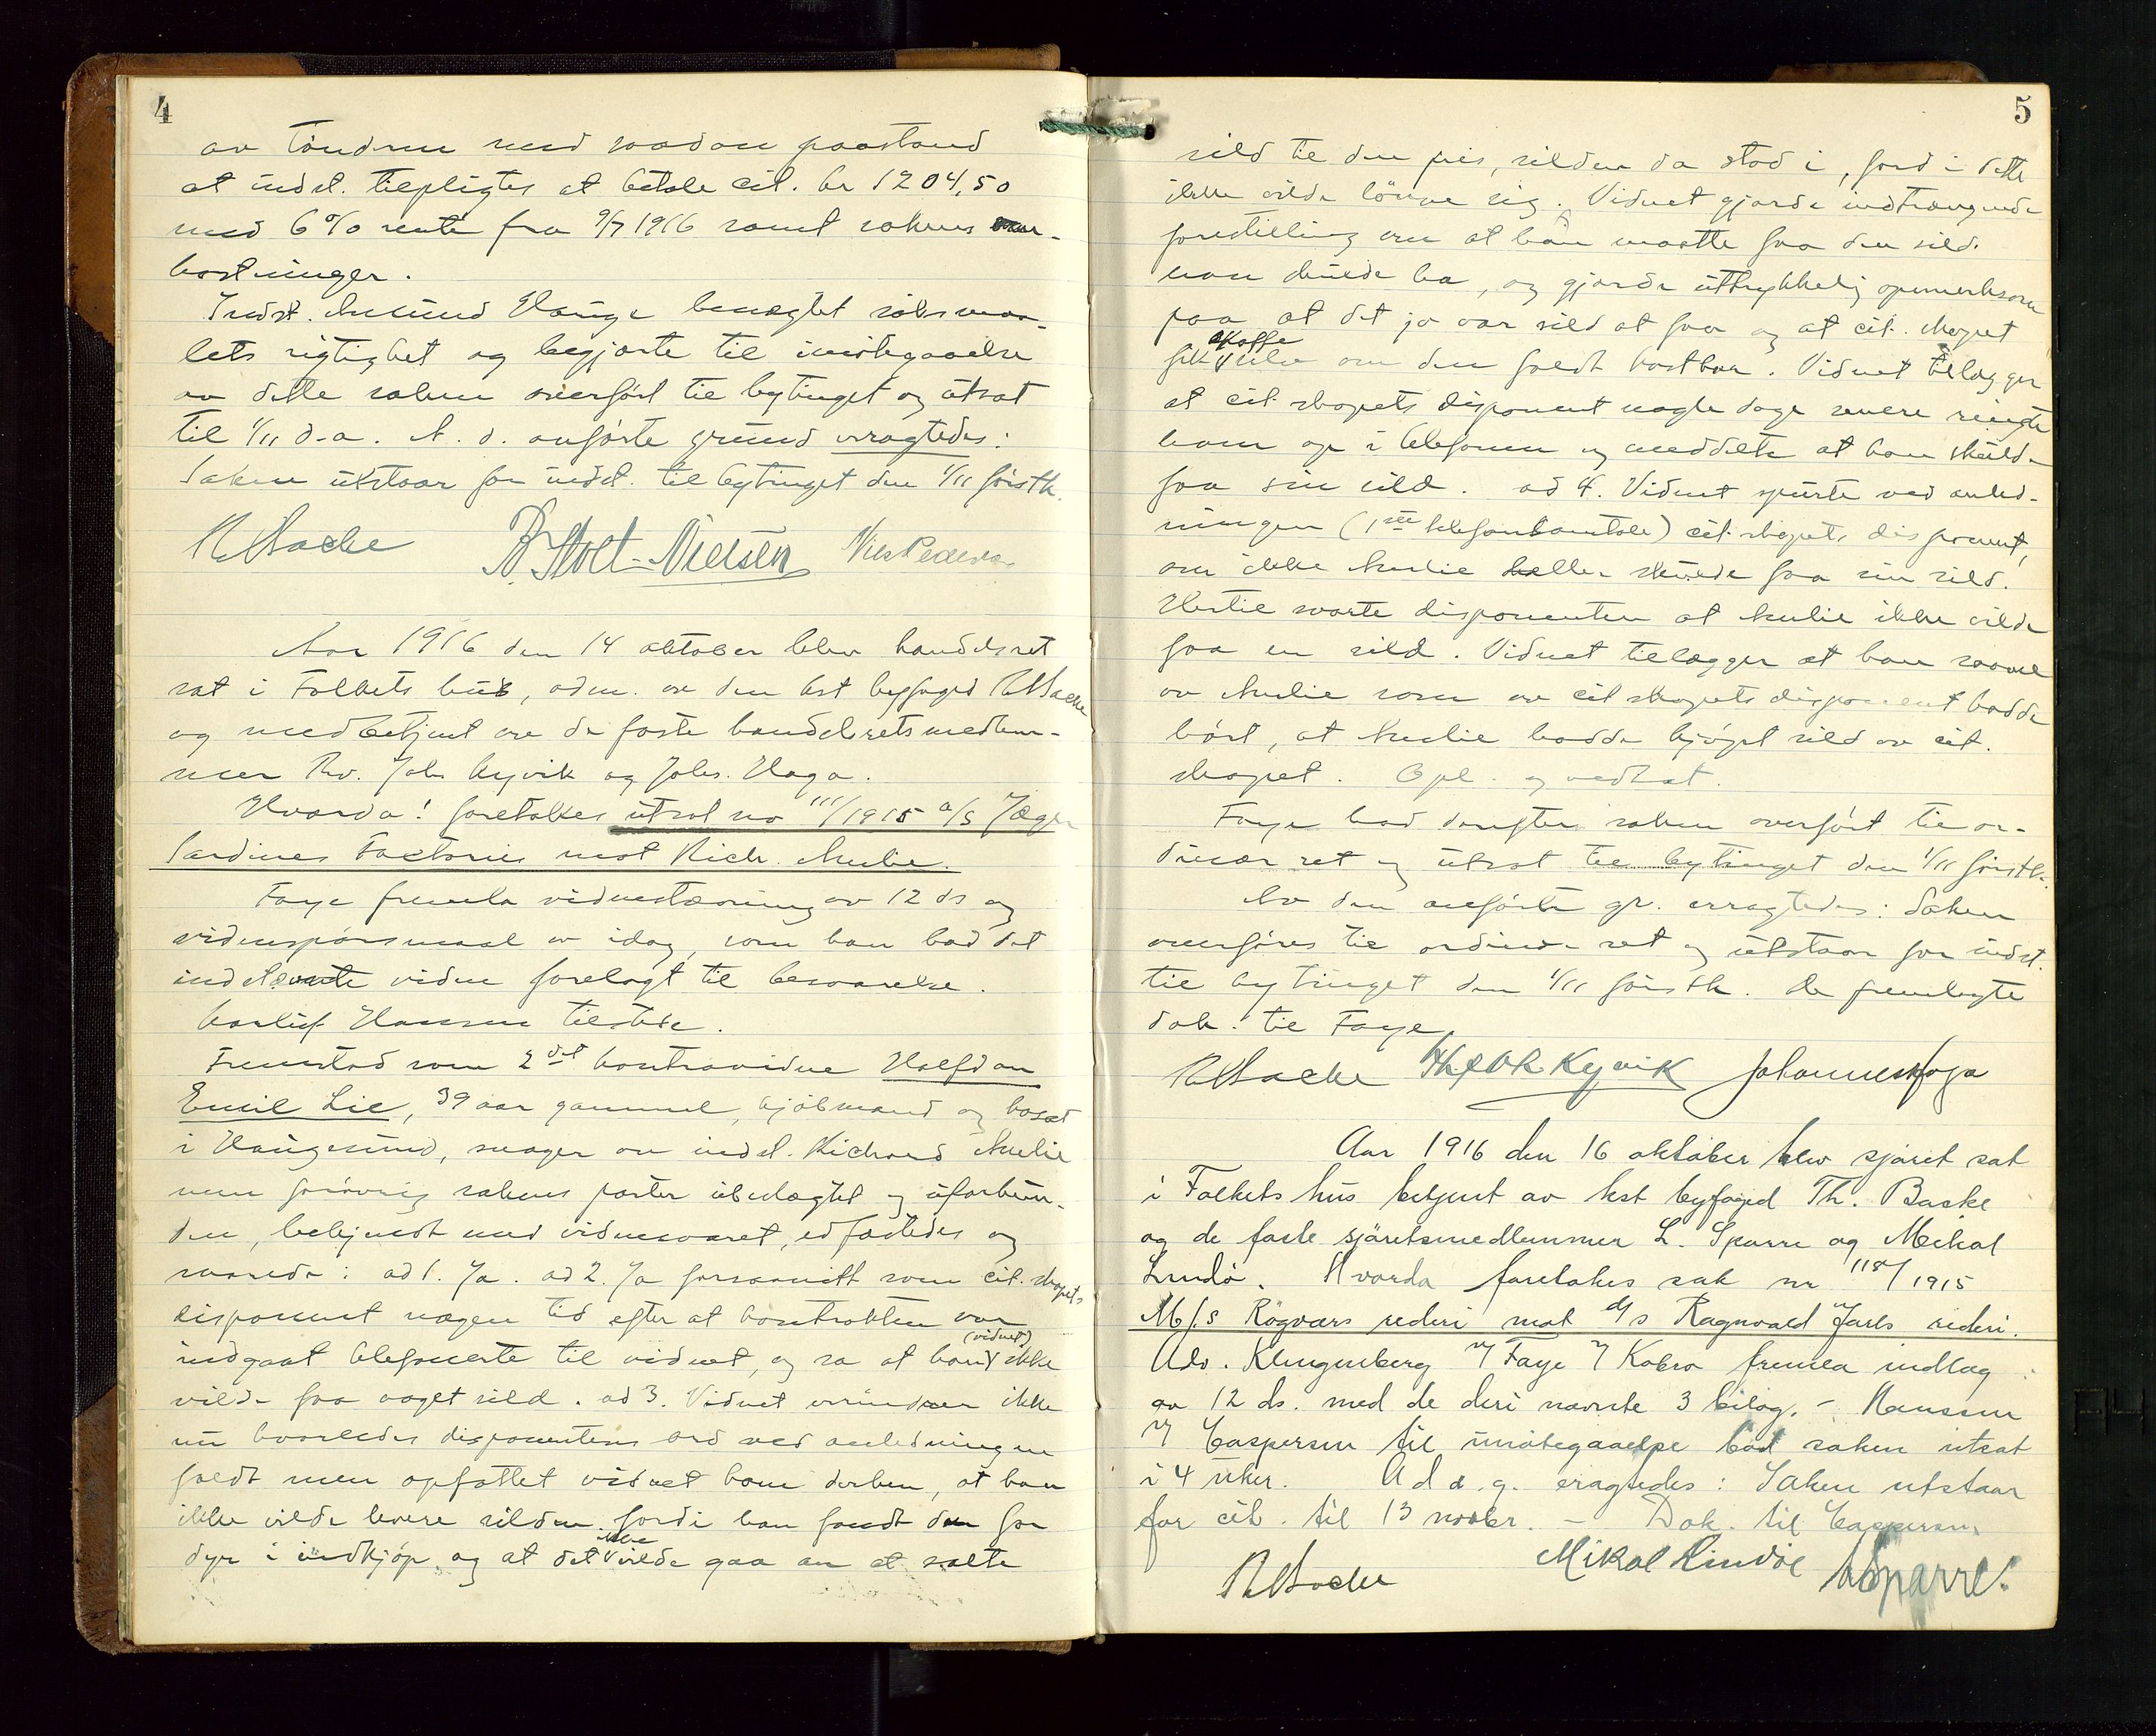 4
av tönderne med saadan paastand
at indst. tilpligtes at betale cit. kr 1204,50
med 6% rente fra 9/7 1916 samt sakens om-
kostninger.
Indst. Amund Hauge benegtet söksmaa-
lets rigtighet og begjærte til imötegaaelse
av dette saken overfört til bytinget og utsat
til 1/11 d.a. A. d. anförte grund erragtedes:
Saken utstaar for indst. til bytinget den 1/11 förstk.
B. Stolt-Nielsen Nils Pedersen
Aar 1916 den 14 oktober blev handelsret
sat i Folkets hus, adm. av den kst byfoged
og medbetjent av de faste handelsretsmedlem-
mer Kyvik og Johs. Haga.
Hvorda! foretokes utsat no 111/1915 a/s Jæger
Sardines Factories mot Rich. Amlie.
Faye fremla vidnestævning av 12 ds og
vidnespörsmaal av idag, som han bad det
indstævnte vidne forelagt til besvarelse.
Hansen tilstede.
Fremstod som 2det kontravidne Halfdan
Emil Lie, 39 aar gammel, kjöbmand og bosat
i Haugesund, svoger av indst. Richard Amlie
men forövrig sakens parter ubeslægtet og uforbun-
den, bekjendt med vidneansvaret, edfæstedes og
svarede: ad 1. Ja. ad 2. Ja forsaavitt som cit. skapets
disponent nogen tid efter at kontrakten var
indgaat telefonerte til vidnet, og sa at han (vidnet) ikke
vilde faa noget sild. ad 3. Vidnet erindrer ikke
nu hvorledes disponentens ord ved anledningen
faldt men opfattet vidnet ham derhen, at han
ikke vilde levere silden fordi han fandt den for
dyr i indkjöp og at det ikke vilde gaa an at salte
5
sild til den pris, silden da stod i, fordi dette
ikke vilde lönne sig. Vidnet gjorde indtrængende
forestilling om at han maatte faa den sild
han skulde ha, og gjorde uttrykkelig opmerksom
paa at det jo var sild at faa og at cit. skapet
fik skaffe silden om den faldt kostbar. Vidnet tilægger
at cit. skapets disponent nogle dage senere ringte
ham op i telefonen og meddelte at han skulde
faa sin sild. ad 4. Vidnet spurte ved anled-
ningen (1ste telefonsamtale) cit. skapets disponent,
om ikke Amlie heller skulde faa sin sild.
Hertil svarte disponenten at Amlie ikke vilde
faa en sild. Vidnet tilægger at han saavel
av Amlie som av cit skapets disponent hadde
hört, at Amlie hadde kjöpt sild av cit.
skapet. Opl. og vedtat.
Faye bad derefter saken overfört til or-
dinær ret og utsat til bytinget den 1/11 förstk.
Av den anförte gr. erragtedes: Saken
overföres til ordinær ret og utstaar for indst.
til bytinget den 1/11 förstk. De fremlagte
dok. til Faye.
Kyvik Johannes Haga
Aar 1916 den 16 oktober blev sjöret sat
i Folkets hus betjent av kst byfoged Th. Bakke
og de faste sjöretsmedlemmer L. Sparre og Mikal
Lindö. Hvorda foretokes sak nr 118/1915
M/S Rögværs rederi mot d/s Ragnvald Jarls rederi.
Adv. Klingenberg v/ Faye v/ Kobro fremla indlæg
av 12 ds. med de deri nævnte 3 bilag. – Hanssen
v/ Caspersen til imötegaaelse bad saken utsat
i 4 uker. A d a. g. eragtedes: Saken utstaar
for cit. til 13 novbr. – Dok. til Caspersen.
Mikal Lindöe L Sparre.